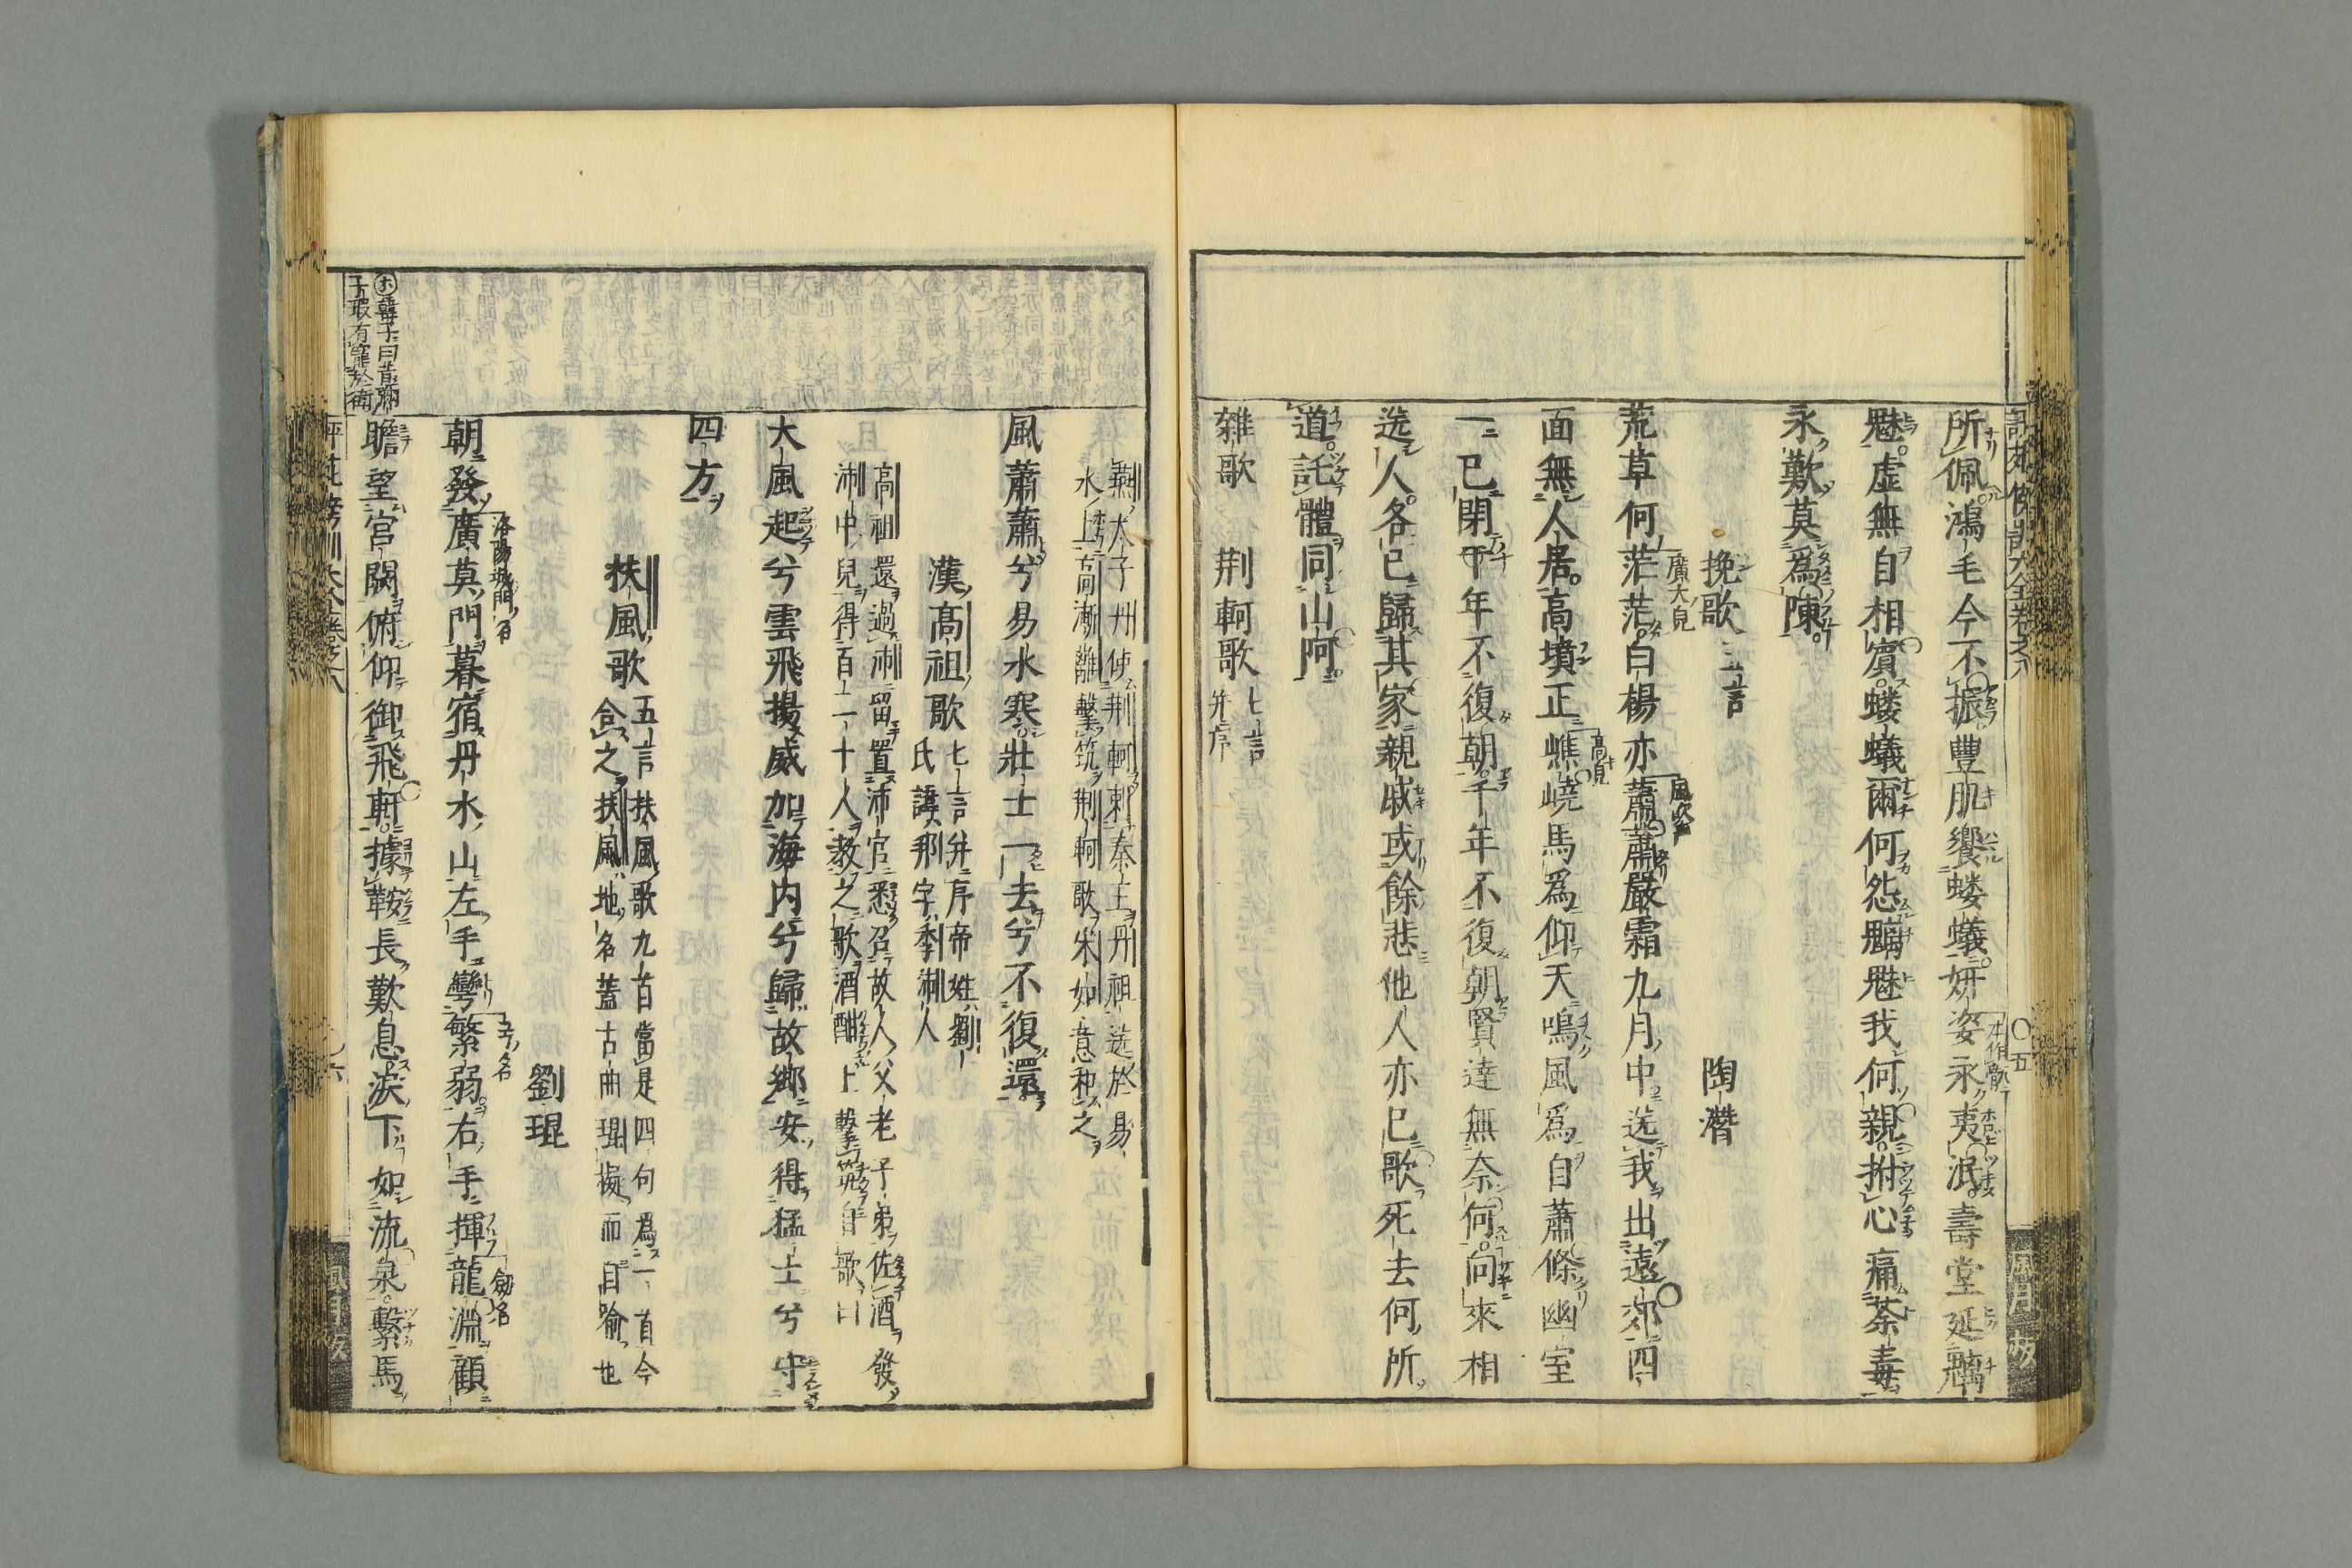 所佩鴻毛今不振豐肌饗螻蟻妍姿永夷泯壽堂延魑
魅虛無自相賓螻蟻爾何怨魑魅我何親拊心痛荼毒
永歎莫爲陳
挽歌 五言 陶潛
荒草何茫茫白楊亦蕭蕭嚴霜九月中送我出遠郊四
廣大皃
風吹聲
面無人居高墳正嶕嶢馬爲仰天鳴風爲自蕭條幽室
高皃
一已閉千年不復朝千年不復朝賢達無奈何向來相
送人各已歸其家親戚或餘悲他人亦已歌死去何所
道託體同山阿
雜歌 荆軻歌 七言 并序
燕太子丹使荆軻刺秦王丹祖送於易
水上高漸離擊筑荆軻歌宋如意和之
風蕭蕭兮易水寒壯士一去兮不復還
漢高祖歌 七言并序帝姓劉
氏諱邦字季沛人
高祖還過沛留置沛宮悉召故人父老子弟佐酒發
沛中兒得百二十人教之歌酒酣上擊筑自歌曰
大風起兮雲飛揚威加海内兮歸故鄉安得猛士兮守
四方
扶風歌 五言扶風歌九首當是四句爲一首今
合之扶風地名蓋古曲琨擬而自喻也
劉琨
朝發廣莫門暮宿丹水山左手彎繁弱右手揮龍淵顧
洛陽城門名
弓名
劒名
瞻望宮闕俯仰御飛軒據鞍長歎息淚下如流泉繫馬
韓子曰昔彌
子瑕有寵於衛